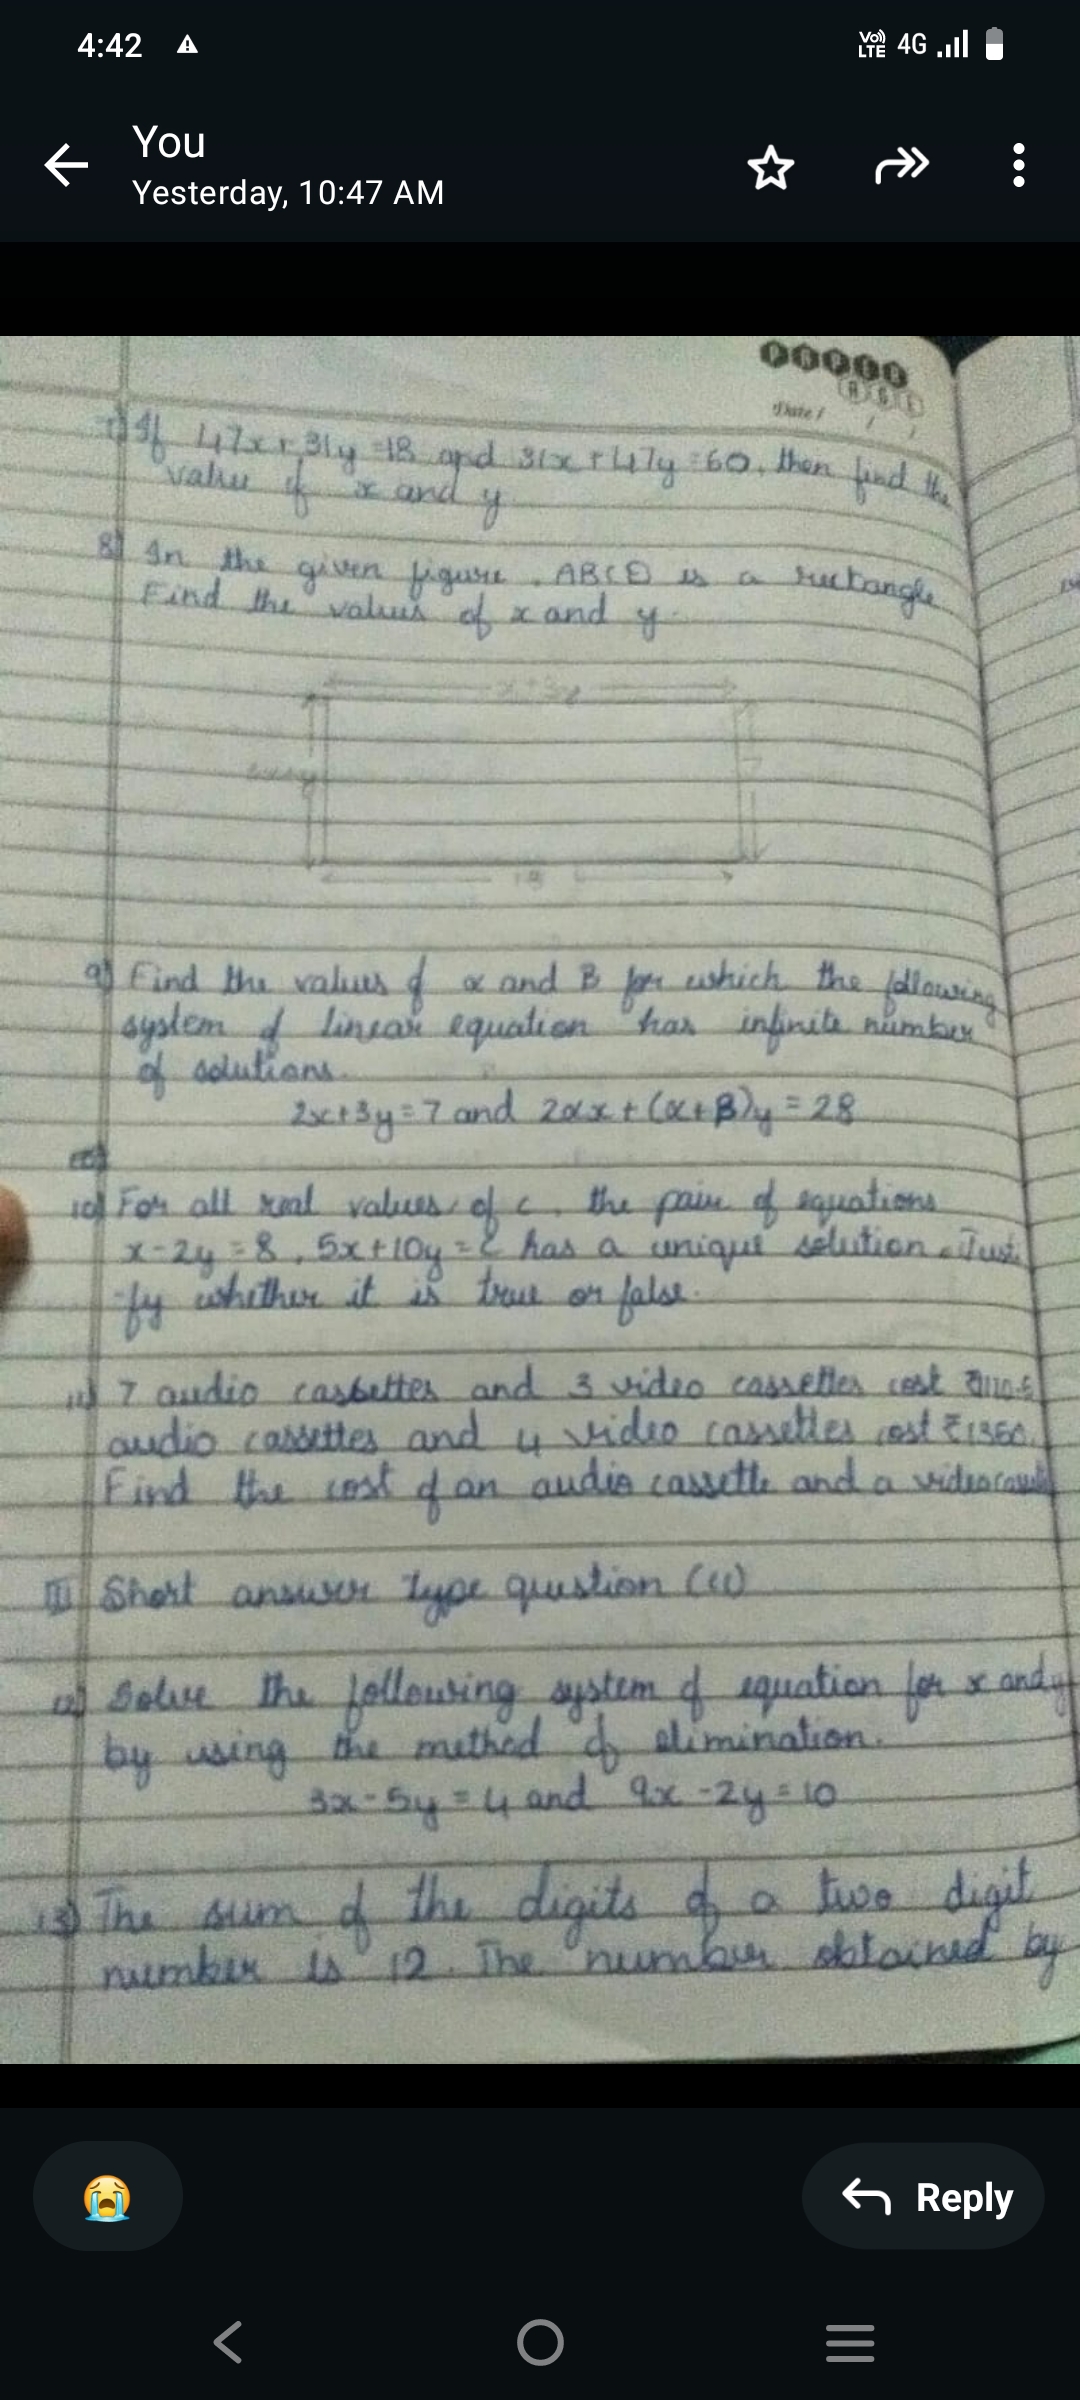 4:42
Vo)) LTE 4G
You
Yesterday, 10:47 AM
PAPER
AGE
Date / / /
7) If 47x + 31y = 18 and 31x + 47y = 60, then find the
value of x and y
8) In the given figure, ABCD is a rectangle
Find the values of x and y.
x + 3y
7
13
9) Find the values of α and β for which the following
system of linear equation has infinite number
of solutions.
2x+3y=7 and 2αx + (α+β)y = 28
10) For all real values of c, the pair of equations
x-2y=8, 5x+10y=c has a unique solution. Justi
-fy whether it is true or false.
11) 7 audio cassettes and 3 video cassettes cost
audio cassettes and 4 video cassettes cost ₹1350.
Find the cost of an audio cassette and a video
III Short answer type question (II)
12) Solve the following system of equation for x and y
by using the method of elimination.
3x-5y=4 and 9x-2y=10
13) The sum of the digits of a two digit
number is 12. The number obtained by
Reply